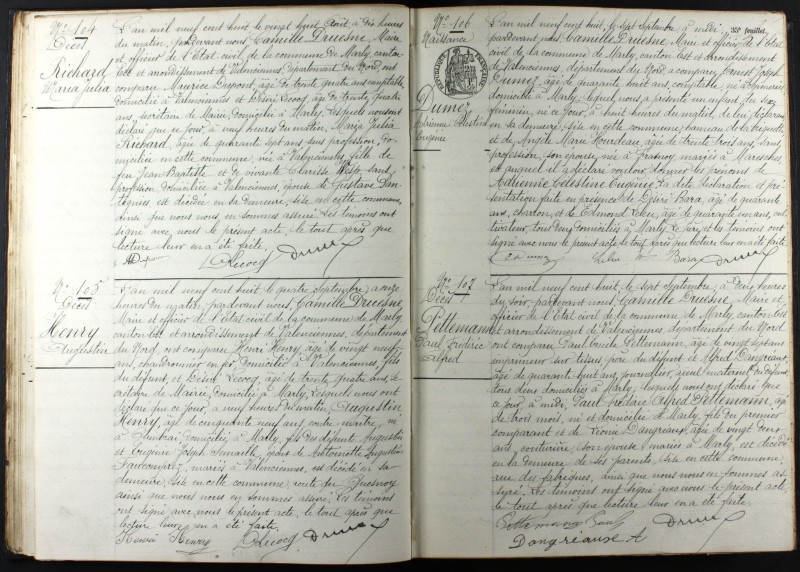 No 104
Décès
Richard
Maria Julia
L'an mil neuf cent huit le vingt huit août à dix heures
du matin, pardevant nous, Camille Druesne, Maire
et officier de l'Etat civil de la commune de Marly, canton
Est et arrondissement de Valenciennes, département du Nord, ont
comparu Maurice Dupont, âgé de trente quatre ans, comptable,
domicilié à Valenciennes et Désiré Lecocq, âgé de trente quatre
ans, secrétaire de Mairie, domicilié à Marly, lesquels nous ont
déclaré que ce jour, à neuf heures du matin, Maria Julia
Richard, âgée de quarante sept ans, sans profession, do-
miciliée en cette commune, née à Valenciennes, fille de
feu Jean Baptiste et de vivante Clarisse sans
profession, domiciliée à Valenciennes, épouse de Gustave
est décédée en sa demeure, sise en cette commune,
ainsi que nous nous en sommes assuré. Les témoins ont
signé avec nous le présent acte, le tout après que
lecture leur en a été faite.
DLecocq Druesne
No 105
Décès
Henry
Augustin
L'an mil neuf cent huit, le quatre septembre, à onze
heures du matin, pardevant nous, Camille Druesne,
Maire et officier de l'Etat civil de la commune de Marly,
canton Est et arrondissement de Valenciennes, département
du Nord, ont comparu Henri Henry, âgé de vingt neuf
ans, chaudronnier en fer, domicilié à Valenciennes, fils
du défunt, et Désiré Lecocq, âgé de trente quatre ans, se-
crétaire de Mairie, domicilié à Marly, lesquels nous ont
déclaré que ce jour, à neuf heures du matin, Augustin
Henry, âgé de cinquante neuf ans, contre maître, né
à domicilié à Marly, fils des défunts Augustin
et Eugénie Joseph époux de Antoinette Augustine
mariés à Valenciennes, est décédé en sa
demeure, sise en cette commune, route du Quesnoy
ainsi que nous nous en sommes assuré. Les témoins
ont signé avec nous le présent acte, le tout après que
lecture leur en a été faite.
Henri Henry DLecocq Druesne
33e feuillet.
No 106
Naissance
REPUBLIQUE FRANÇAISE
Dumez
Adrienne Célestine
Eugénie
L'an mil neuf cent huit, le sept septembre à midi,
pardevant nous, Camille Druesne, Maire et officier de l'Etat
civil de la commune de Marly, canton Est et arrondissement
de Valenciennes, département du Nord, a comparu Ernest Joseph
Dumez, âgé de quarante huit ans, comptable, né à
domicilié à Marly, lequel nous a présenté un enfant du sexe
féminin, né ce jour, à huit heures du matin, de lui déclarant
en sa demeure, sise en cette commune, hameau de la Briquette
et de Angèle Marie Hourdeau, âgée de trente trois ans, sans
profession, son épouse, née à mariés à Maresches,
et auquel il a déclaré vouloir donner les prénoms de
Adrienne Célestine Eugénie. La dite déclaration et pré-
sentation faite en présence de Désiré Bara, âgé de quarante
ans, charron, et de Edmond Lelen, âgé de quarante un ans, cul-
tivateur, tous deux domiciliés à Marly. Le père et les témoins ont
signé avec nous le présent acte, le tout après que lecture leur en a été faite.
E Dumez Bara Druesne
No 107
Décès
Pettemann
Paul Frédéric
Alfred
L'an mil neuf cent huit, le sept septembre, à deux heures
du soir, pardevant nous, Camille Druesne, Maire et
officier de l'Etat civil de la commune de Marly, canton Est
et arrondissement de Valenciennes, département du Nord
ont comparu Paul Emile Pettemann, âgé de vingt sept ans
imprimeur sur tissus, père du défunt et Alfred Dangréaux,
âgé de quarante huit ans, journalier, aïeul maternel du défunt,
tous deux domiciliés à Marly, lesquels nous ont déclaré que
ce jour, à midi, Paul Frédéric Alfred Pettemann, âgé
de trois mois, né et domicilié à Marly, fils du premier
comparant et de Léonie Dangréaux, âgée de vingt deux
ans, couturière, son épouse, mariés à Marly, est décédé
en la demeure de ses parents, sise en cette commune,
rue des fabriques, ainsi que nous nous en sommes as-
suré. Les témoins ont signé avec nous le présent acte,
le tout après que lecture leur en a été faite.
Pettemann Paul Druesne
Dangreause A